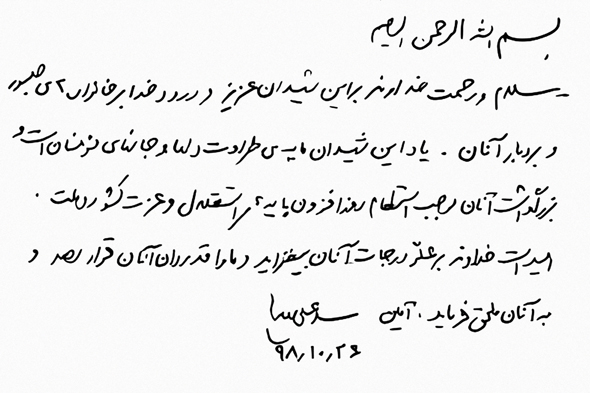 بسم الله الرحمن الرحیم
سلام و رحمت خداوند بر این شهیدان عزیز و درود خدا بر خانواده‌های صبور
و بردبار آنان. یاد این شهیدان مایه‌ی طراوت دلها و جانهای مؤمنان است و
بزرگداشت آنان موجب استحکام روزافزون پایه‌ی استقلال و عزت کشور و ملت.
امید است خداوند بر علوّ درجات آنان بیفزاید و ما را قدردان آنان قرار دهد و
به آنان ملحق فرماید. آمین سیدعلی خامنه‌ای
۹۸٫۱۰٫۲۶